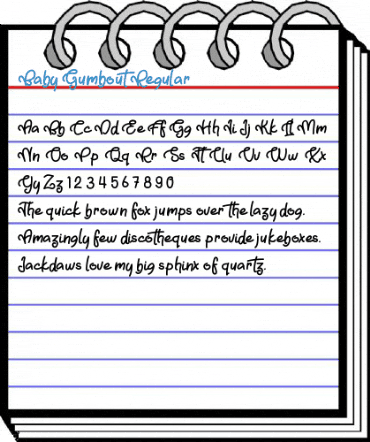 Baby Gumbout Regular
Aa Bb Cc Dd Ee Ff Gg Hh Ii Jj Kk Ll Mm
Nn Oo Pp Qq Rr Ss Tt Uu Vv Ww Xx
Yy Zz 1 2 3 4 5 6 7 8 9 0
The quick brown fox jumps over the lazy dog.
Amazingly few discotheques provide jukeboxes.
Jackdaws love my big sphinx of quartz.